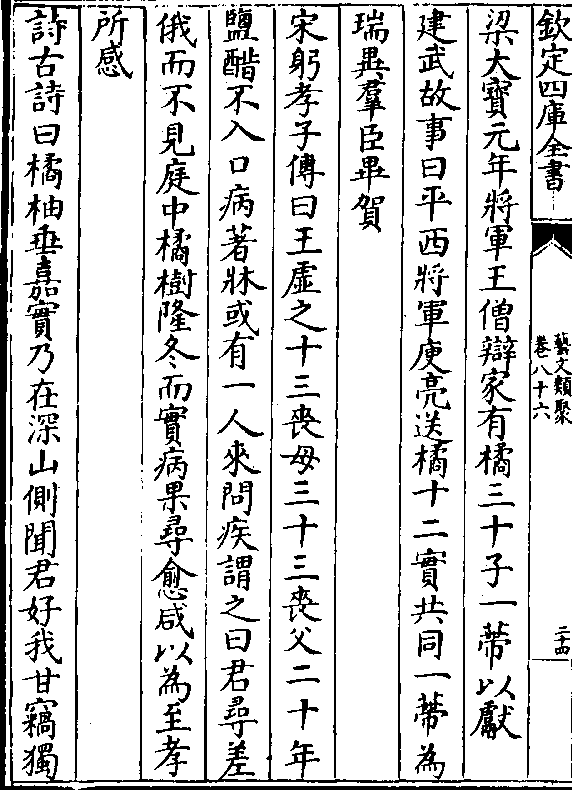 欽定四庫全書
藝文類聚
卷八十六
二十四
梁大寶元年將軍王僧辯家有橘三十子一蔕以獻
建武故事曰平西將軍庾亮送橘十二實共同一蔕為
瑞異羣臣畢賀
宋躬孝子傳曰王虛之十三喪母三十三喪父二十年
鹽醋不入口病著牀或有一人來問疾謂之曰君尋差
俄而不見庭中橘樹隆冬而實病果尋愈咸以為至孝
所感
詩古詩曰橘柚垂嘉實乃在深山側聞君好我甘竊獨